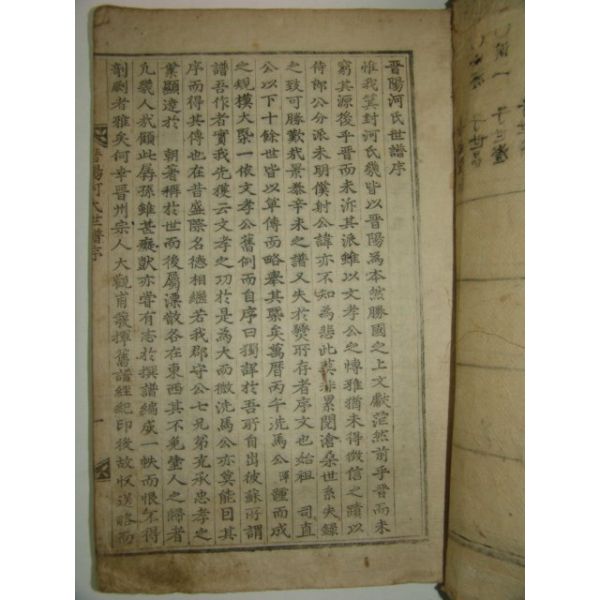 晋陽河氏世譜序
惟我箕封河氏幾皆以晋陽為本然勝國之上文獻茫然前乎晋而未
窮其源後乎晋而未泝其派雖以文孝公之博雅猶未得徵信之蹟以
侍郎公分派未明僕射公諱亦不知為悲此莫非累閱滄桑世系失錄
之致可勝歎哉景泰辛未之譜又失於燹所存者序文也始祖 司直
公以下十餘世皆以單傳而略擧其槩矣萬曆丙午洗馬公渾踵而成
之規模大槩一依文孝公舊例而自序曰獨詳於吾所自出彼蘇所謂
譜吾作者實我先獲云文孝之功於是為大而微洗馬公亦奠能因其
序而得其傳也在昔盛際名德相繼若我郡守公七兄弟克承忠孝之
業顯達於 朝著稱於世而後屬漂散各在東西其不免塗人之歸者
凢幾人哉顧此孱孫雖甚癡獃亦嘗有志於撰譜編成一帙而恨不得
剞劂者雅矣何幸晋州宗人大觀甫發揮舊譜經紀印後故收送略而
晋陽河氏世譜序
一